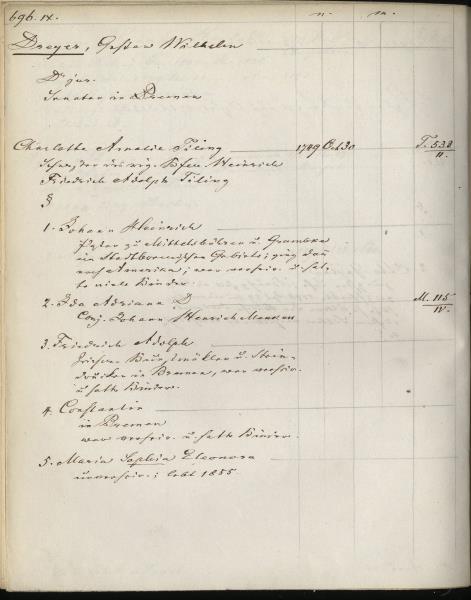 696. IX. n. m.
Dreyer, Gustav Wilhelm
Dr jur.
Senator in Bremen
Charlotte Amalie Tiling 1749 Oct 30 T. 538 / II.
Schwester des vig. Heinrich
Friedrich Adolph Tiling
§
1. Johann Heinrich
zu Mittelsbühren u. Grambke
im Gebiete; ging dann
nach Amerika; war verheir. u. hat-
te viele Kinder.
2. Ida Adriana D M. 115 / IV.
Conj. Johann Henrich Menken
3. Friedrich Adolph
u. Stein-
drucker in Bremen, war verheir.
u. hatte Kinder.
4. Constantin
in Bremen
war verheir. u. hatte Kinder.
5. Maria Sophia Eleonora
unverheir.; lebt 1855